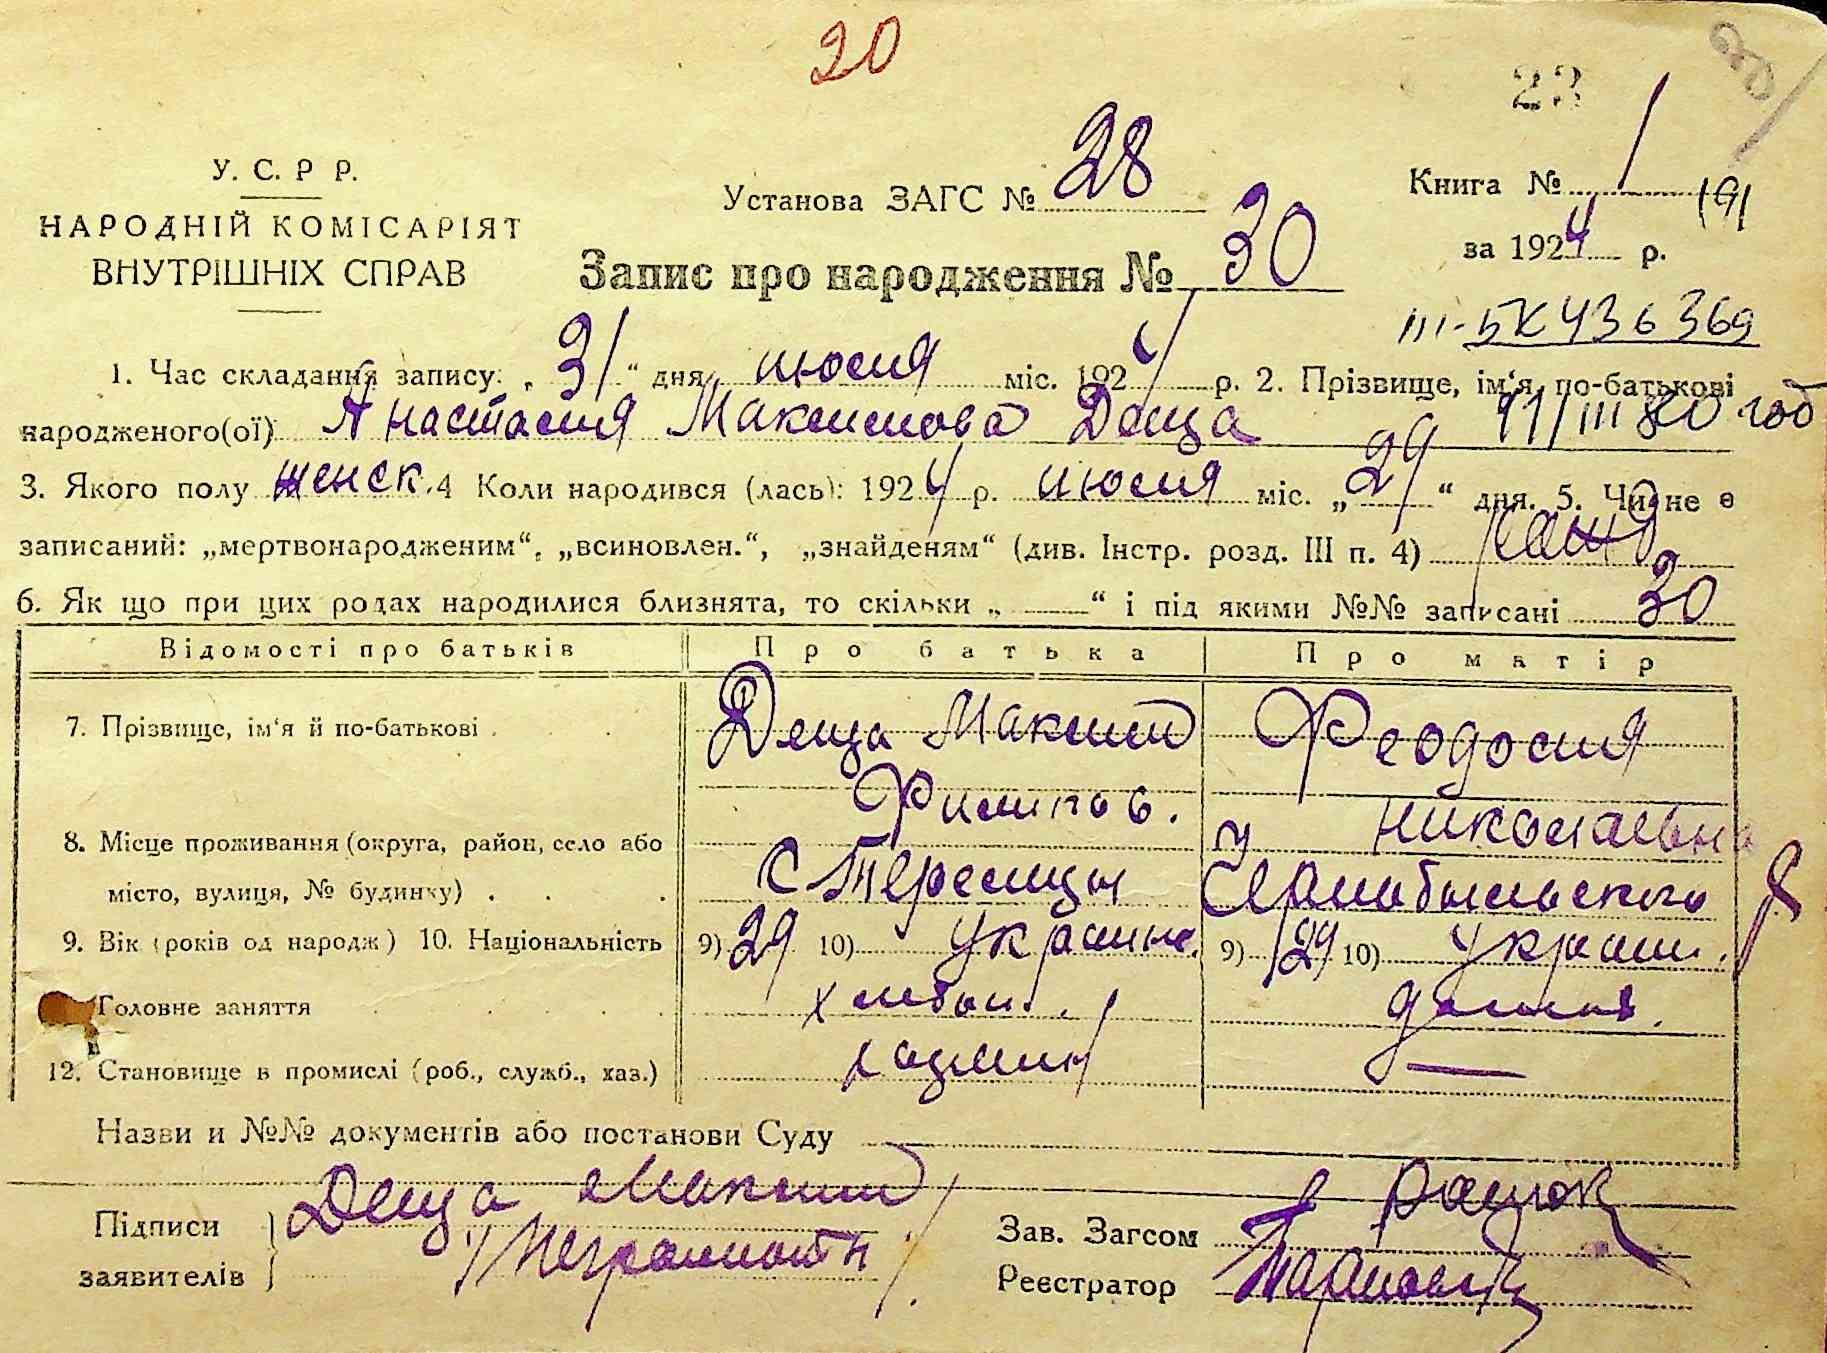 20
23
20/
У. С. Р Р.
НАРОДНІЙ КОМІСАРІЯТ
ВНУТРІШНІХ СПРАВ
Установа ЗАГС № 28
Книга № 1
191
за 1924 р.
Запис про народження № 30
III-БК 436369
1. Час складання запису: „31“ дня июля міс. 1924 р. 2. Прізвище, ім‘я, по-батькові
народженого(ої) Анастасия Максимова Деща 11/III 80 год
3. Якого полу женск. 4 Коли народився (лась): 1924 р. июля міс. „29“ дня. 5. Чи не є
записаний: „мертвонародженим“, „всиновлен.“, „знайденям“ (див. Інстр. розд. III п. 4)
6. Як що при цих родах народилися близнята, то скільки „ — “ і під якими №№ записані 30
Відомості про батьків Про батька Про матір
7. Прізвище, ім‘я й по-батькові Деща Максим Феодосия
Филипов. Николаевна
8. Місце проживання (округа, район, село або
місто, вулиця, № будинку) с
9. Вік (років од народж) 10. Національність 9) 29 10) украине. 9) 29 10) украин.
Головне заняття хлебоп. домаш.
12. Становище в промислі (роб., служб., хаз.) —
Назви и №№ документів або постанови Суду
Підписи заявителів
Деща Максим
/Неграмотн/.
Зав. Загсом
Реєстратор